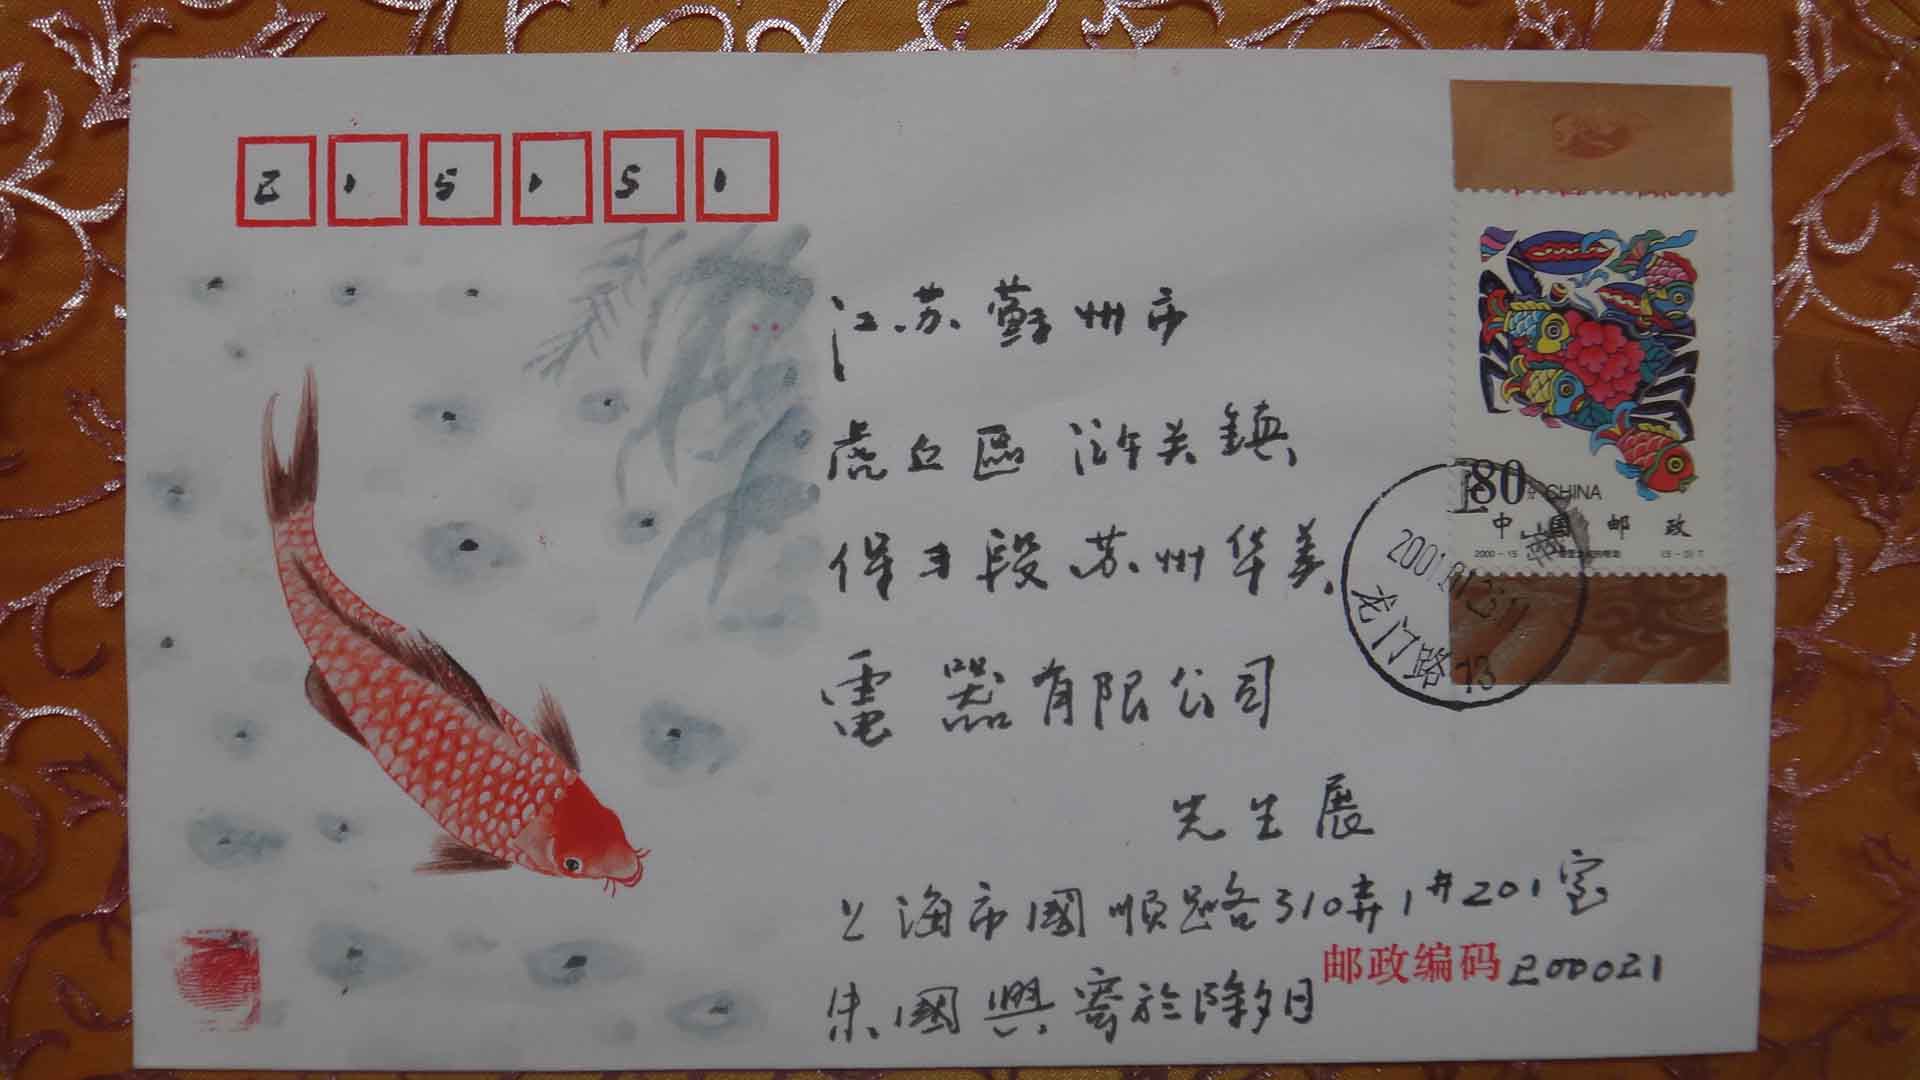 215151
江苏蘇州市
虎丘區浒关鎮
保丰段苏州华美
電器有限公司
先生展
上海市國順路310弄1#201室
邮政编码200021
朱國興寄於除夕日
80分 CHINA
中国邮政
2000-15
上海
2001.01.23.17
龙门路13